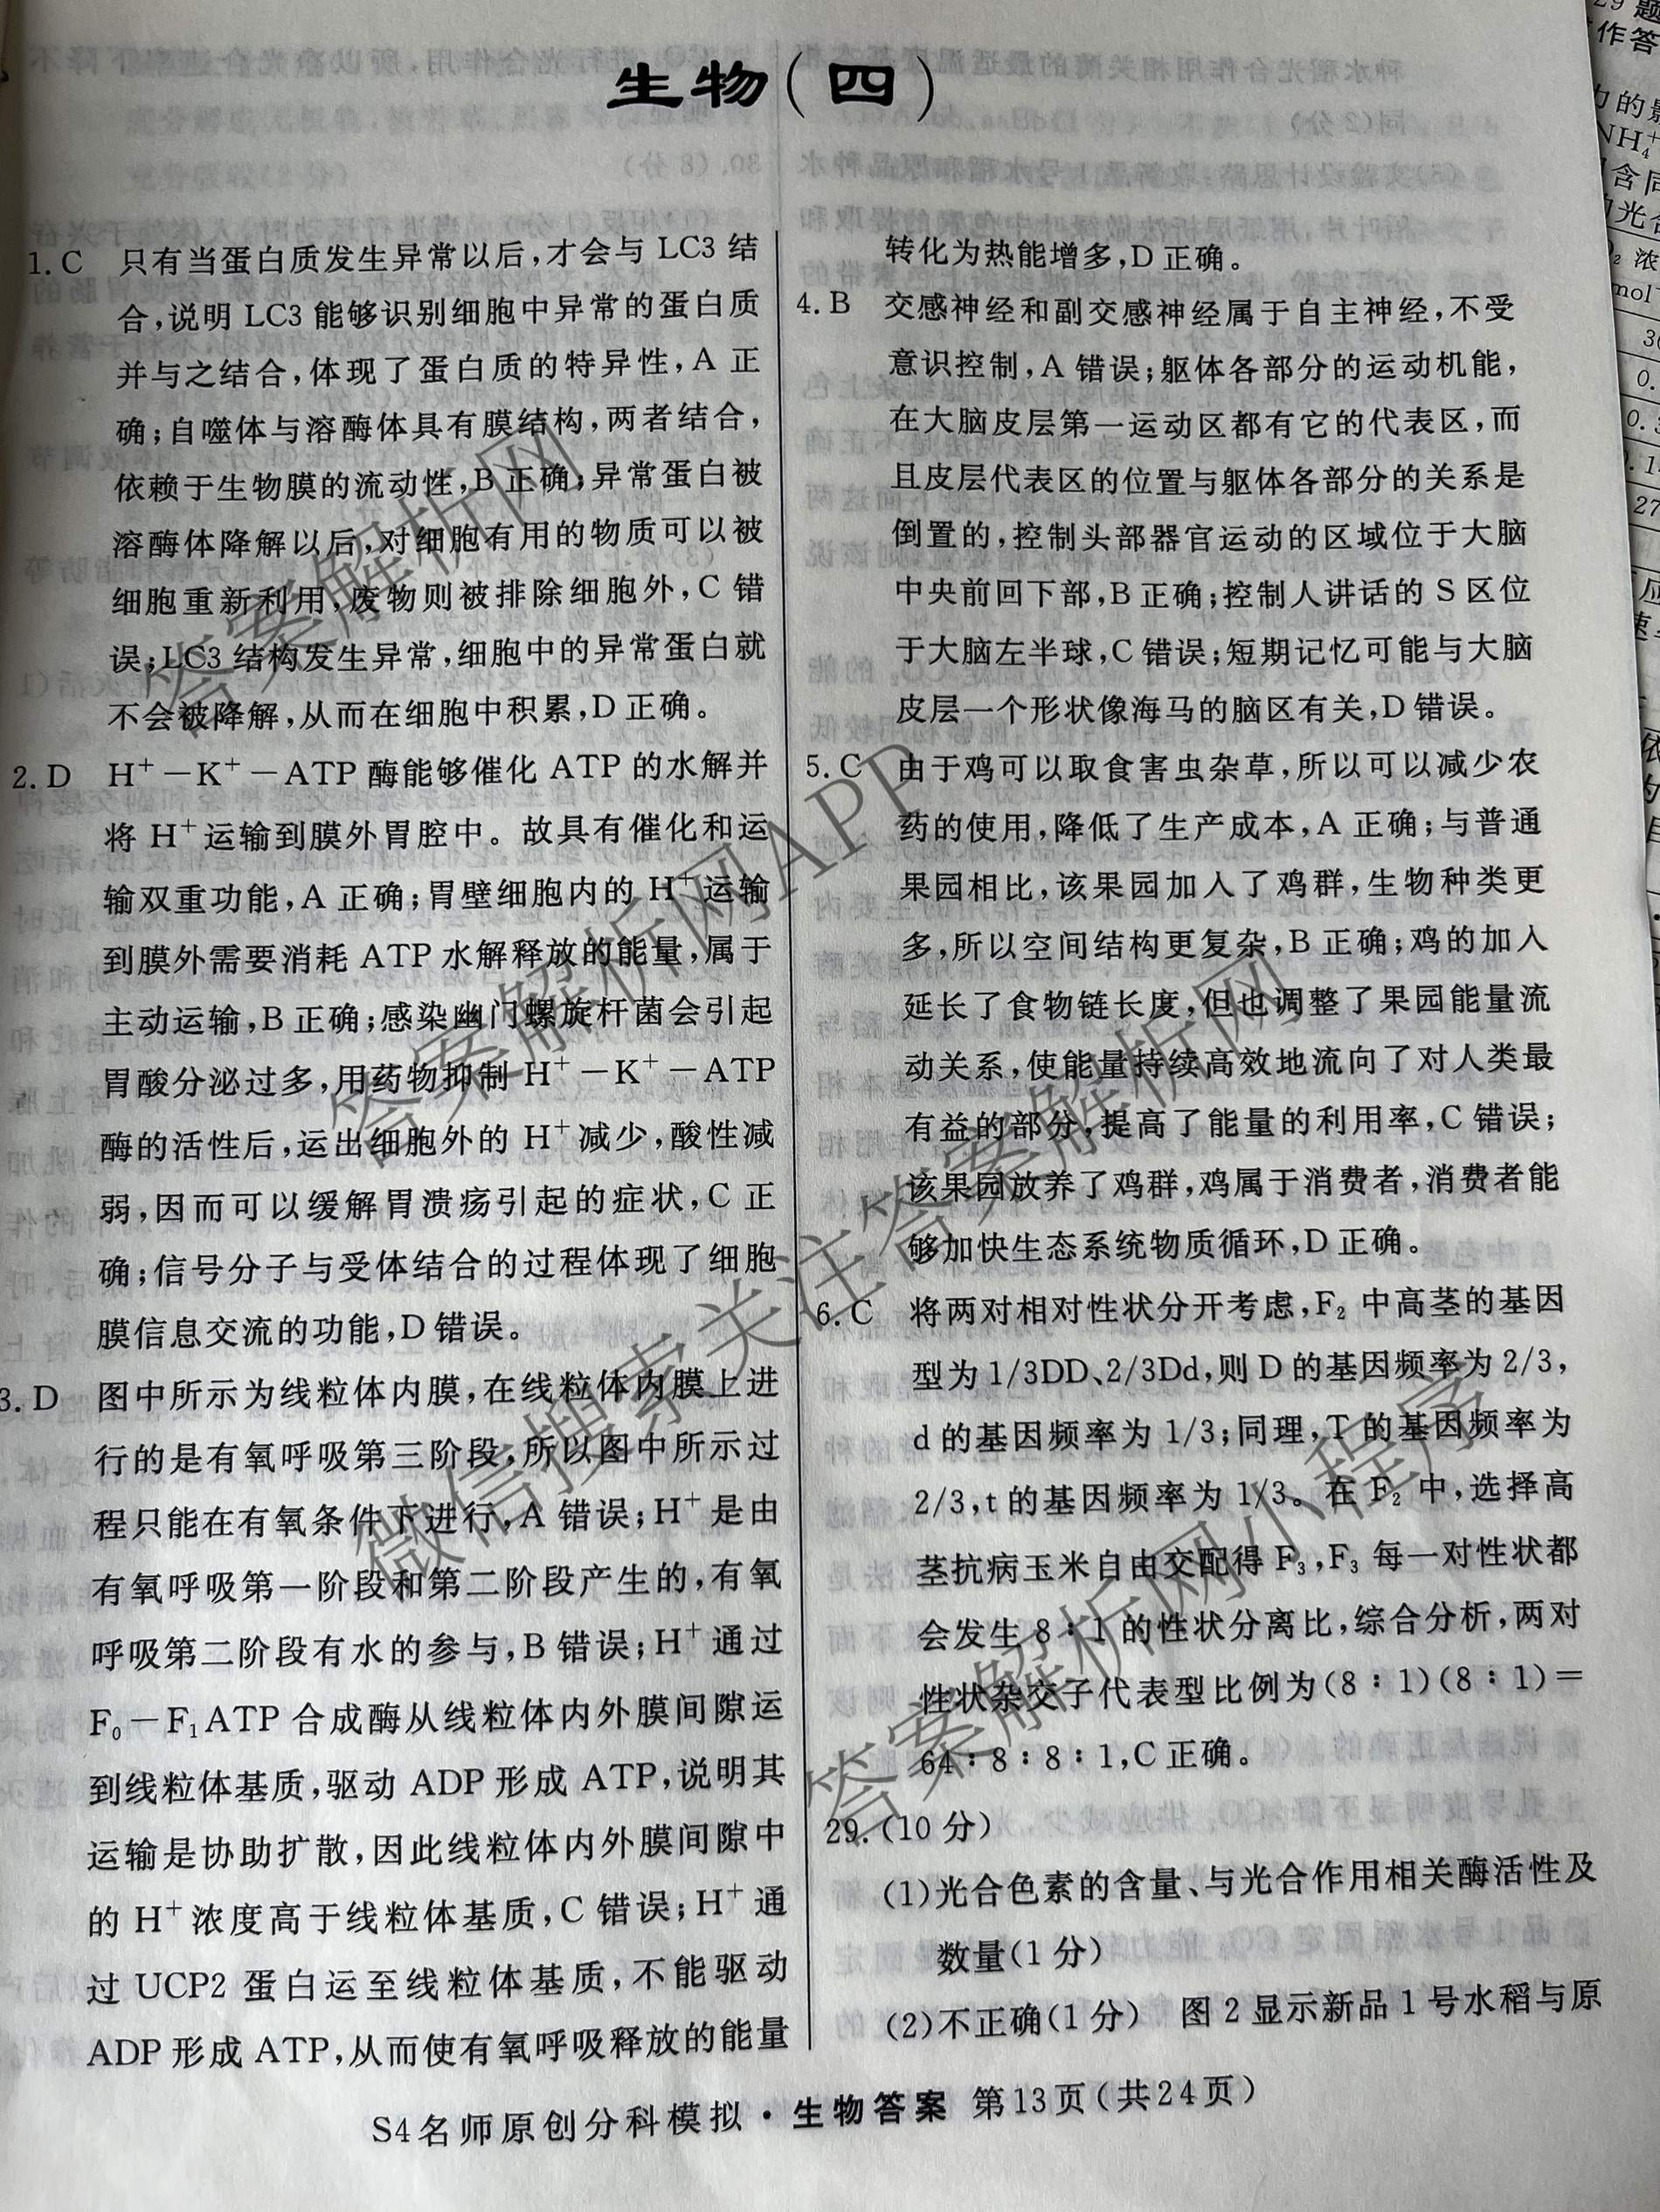 生物(四)
1.C 只有当蛋白质发生异常以后,才会与 LC3 结
合,说明 LC3 能够识别细胞中异常的蛋白质
并与之结合,体现了蛋白质的特异性,A 正
确;自噬体与溶酶体具有膜结构,两者结合,
依赖于生物膜的流动性,B 正确;异常蛋白被
溶酶体降解以后,对细胞有用的物质可以被
细胞重新利用,废物则被排除细胞外,C 错
误;LC3 结构发生异常,细胞中的异常蛋白就
不会被降解,从而在细胞中积累,D 正确。
2.D H⁺-K⁺-ATP 酶能够催化 ATP 的水解并
将 H⁺运输到膜外胃腔中。故具有催化和运
输双重功能,A 正确;胃壁细胞内的 H⁺运输
到膜外需要消耗 ATP 水解释放的能量,属于
主动运输,B 正确;感染幽门螺旋杆菌会引起
胃酸分泌过多,用药物抑制 H⁺-K⁺-ATP
酶的活性后,运出细胞外的 H⁺减少,酸性减
弱,因而可以缓解胃溃疡引起的症状,C 正
确;信号分子与受体结合的过程体现了细胞
膜信息交流的功能,D 错误。
3.D 图中所示为线粒体内膜,在线粒体内膜上进
行的是有氧呼吸第三阶段,所以图中所示过
程只能在有氧条件下进行,A 错误;H⁺是由
有氧呼吸第一阶段和第二阶段产生的,有氧
呼吸第二阶段有水的参与,B 错误;H⁺通过
F₀-F₁ATP 合成酶从线粒体内外膜间隙运
到线粒体基质,驱动 ADP 形成 ATP,说明其
运输是协助扩散,因此线粒体内外膜间隙中
的 H⁺浓度高于线粒体基质,C 错误;H⁺通
过 UCP2 蛋白运至线粒体基质,不能驱动
ADP 形成 ATP,从而使有氧呼吸释放的能量
转化为热能增多,D 正确。
4.B 交感神经和副交感神经属于自主神经,不受
意识控制,A 错误;躯体各部分的运动机能,
在大脑皮层第一运动区都有它的代表区,而
且皮层代表区的位置与躯体各部分的关系是
倒置的,控制头部器官运动的区域位于大脑
中央前回下部,B 正确;控制人讲话的 S 区位
于大脑左半球,C 错误;短期记忆可能与大脑
皮层一个形状像海马的脑区有关,D 错误。
5.C 由于鸡可以取食害虫杂草,所以可以减少农
药的使用,降低了生产成本,A 正确;与普通
果园相比,该果园加入了鸡群,生物种类更
多,所以空间结构更复杂,B 正确;鸡的加入
延长了食物链长度,但也调整了果园能量流
动关系,使能量持续高效地流向了对人类最
有益的部分,提高了能量的利用率,C 错误;
该果园放养了鸡群,鸡属于消费者,消费者能
够加快生态系统物质循环,D 正确。
6.C 将两对相对性状分开考虑,F₂ 中高茎的基因
型为 1/3DD、2/3Dd,则 D 的基因频率为 2/3,
d 的基因频率为 1/3;同理,T 的基因频率为
2/3,t 的基因频率为 1/3。在 F₂ 中,选择高
茎抗病玉米自由交配得 F₃,F₃ 每一对性状都
会发生 8∶1 的性状分离比,综合分析,两对
性状杂交子代表型比例为(8∶1)(8∶1)=
64∶8∶8∶1,C 正确。
29.(10 分)
(1)光合色素的含量、与光合作用相关酶活性及
数量(1 分)
(2)不正确(1 分) 图 2 显示新品 1 号水稻与原
S4名师原创分科模拟·生物答案 第13页(共24页)
答案解析网
答案解析网APP
微信搜索关注答案解析网
答案解析网小程序
29题
作答
力的影
NH₄⁺